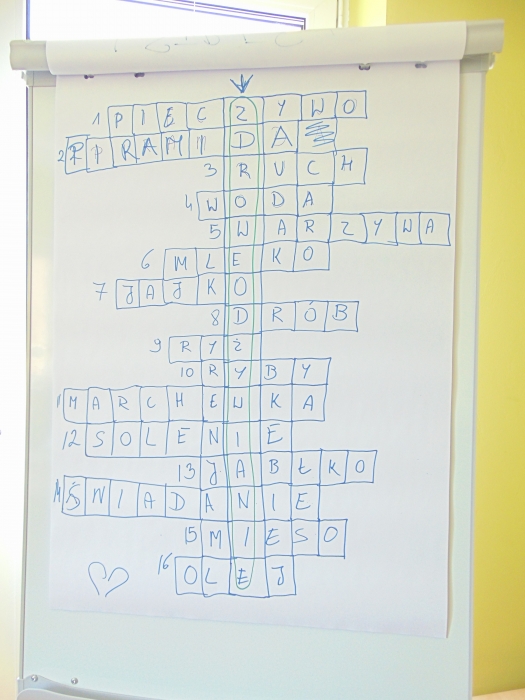 1 PIECZYWO
2 PIRAMIDA
3 RUCH
4 WODA
5 WARZYWA
6 MLEKO
7 JAJKO
8 DRÓB
9 RYŻ
10 RYBY
11 MARCHEWKA
12 SOLENIE
13 JABŁKO
14 ŚNIADANIE
15 MIESO
16 OLEJ